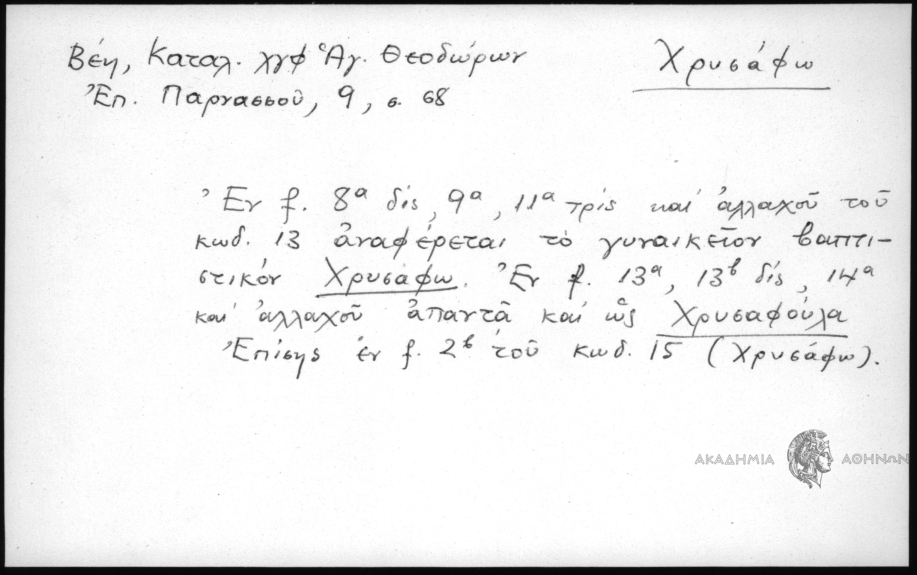 Βέη, Καταλ. χγφ Ἁγ. Θεοδώρων
Χρυσάφω
Ἐπ. Παρνασσοῦ, 9, σ. 68
Ἐν f. 8α δίς, 9α, 11α τρίς καί ἀλλαχοῦ τοῦ
κωδ. 13 ἀναφέρεται τὸ γυναικεῖον βαπτι-
στικόν Χρυσάφω. Ἐν f. 13α, 13β δίς, 14α
καί ἀλλαχοῦ ἀπαντᾶ καί ὡς Χρυσαφούλα
Ἐπίσης ἐν f. 2β τοῦ κωδ. 15 (Χρυσάφω).
ΑΚΑΔΗΜΙΑ ΑΘΗΝΩΝ